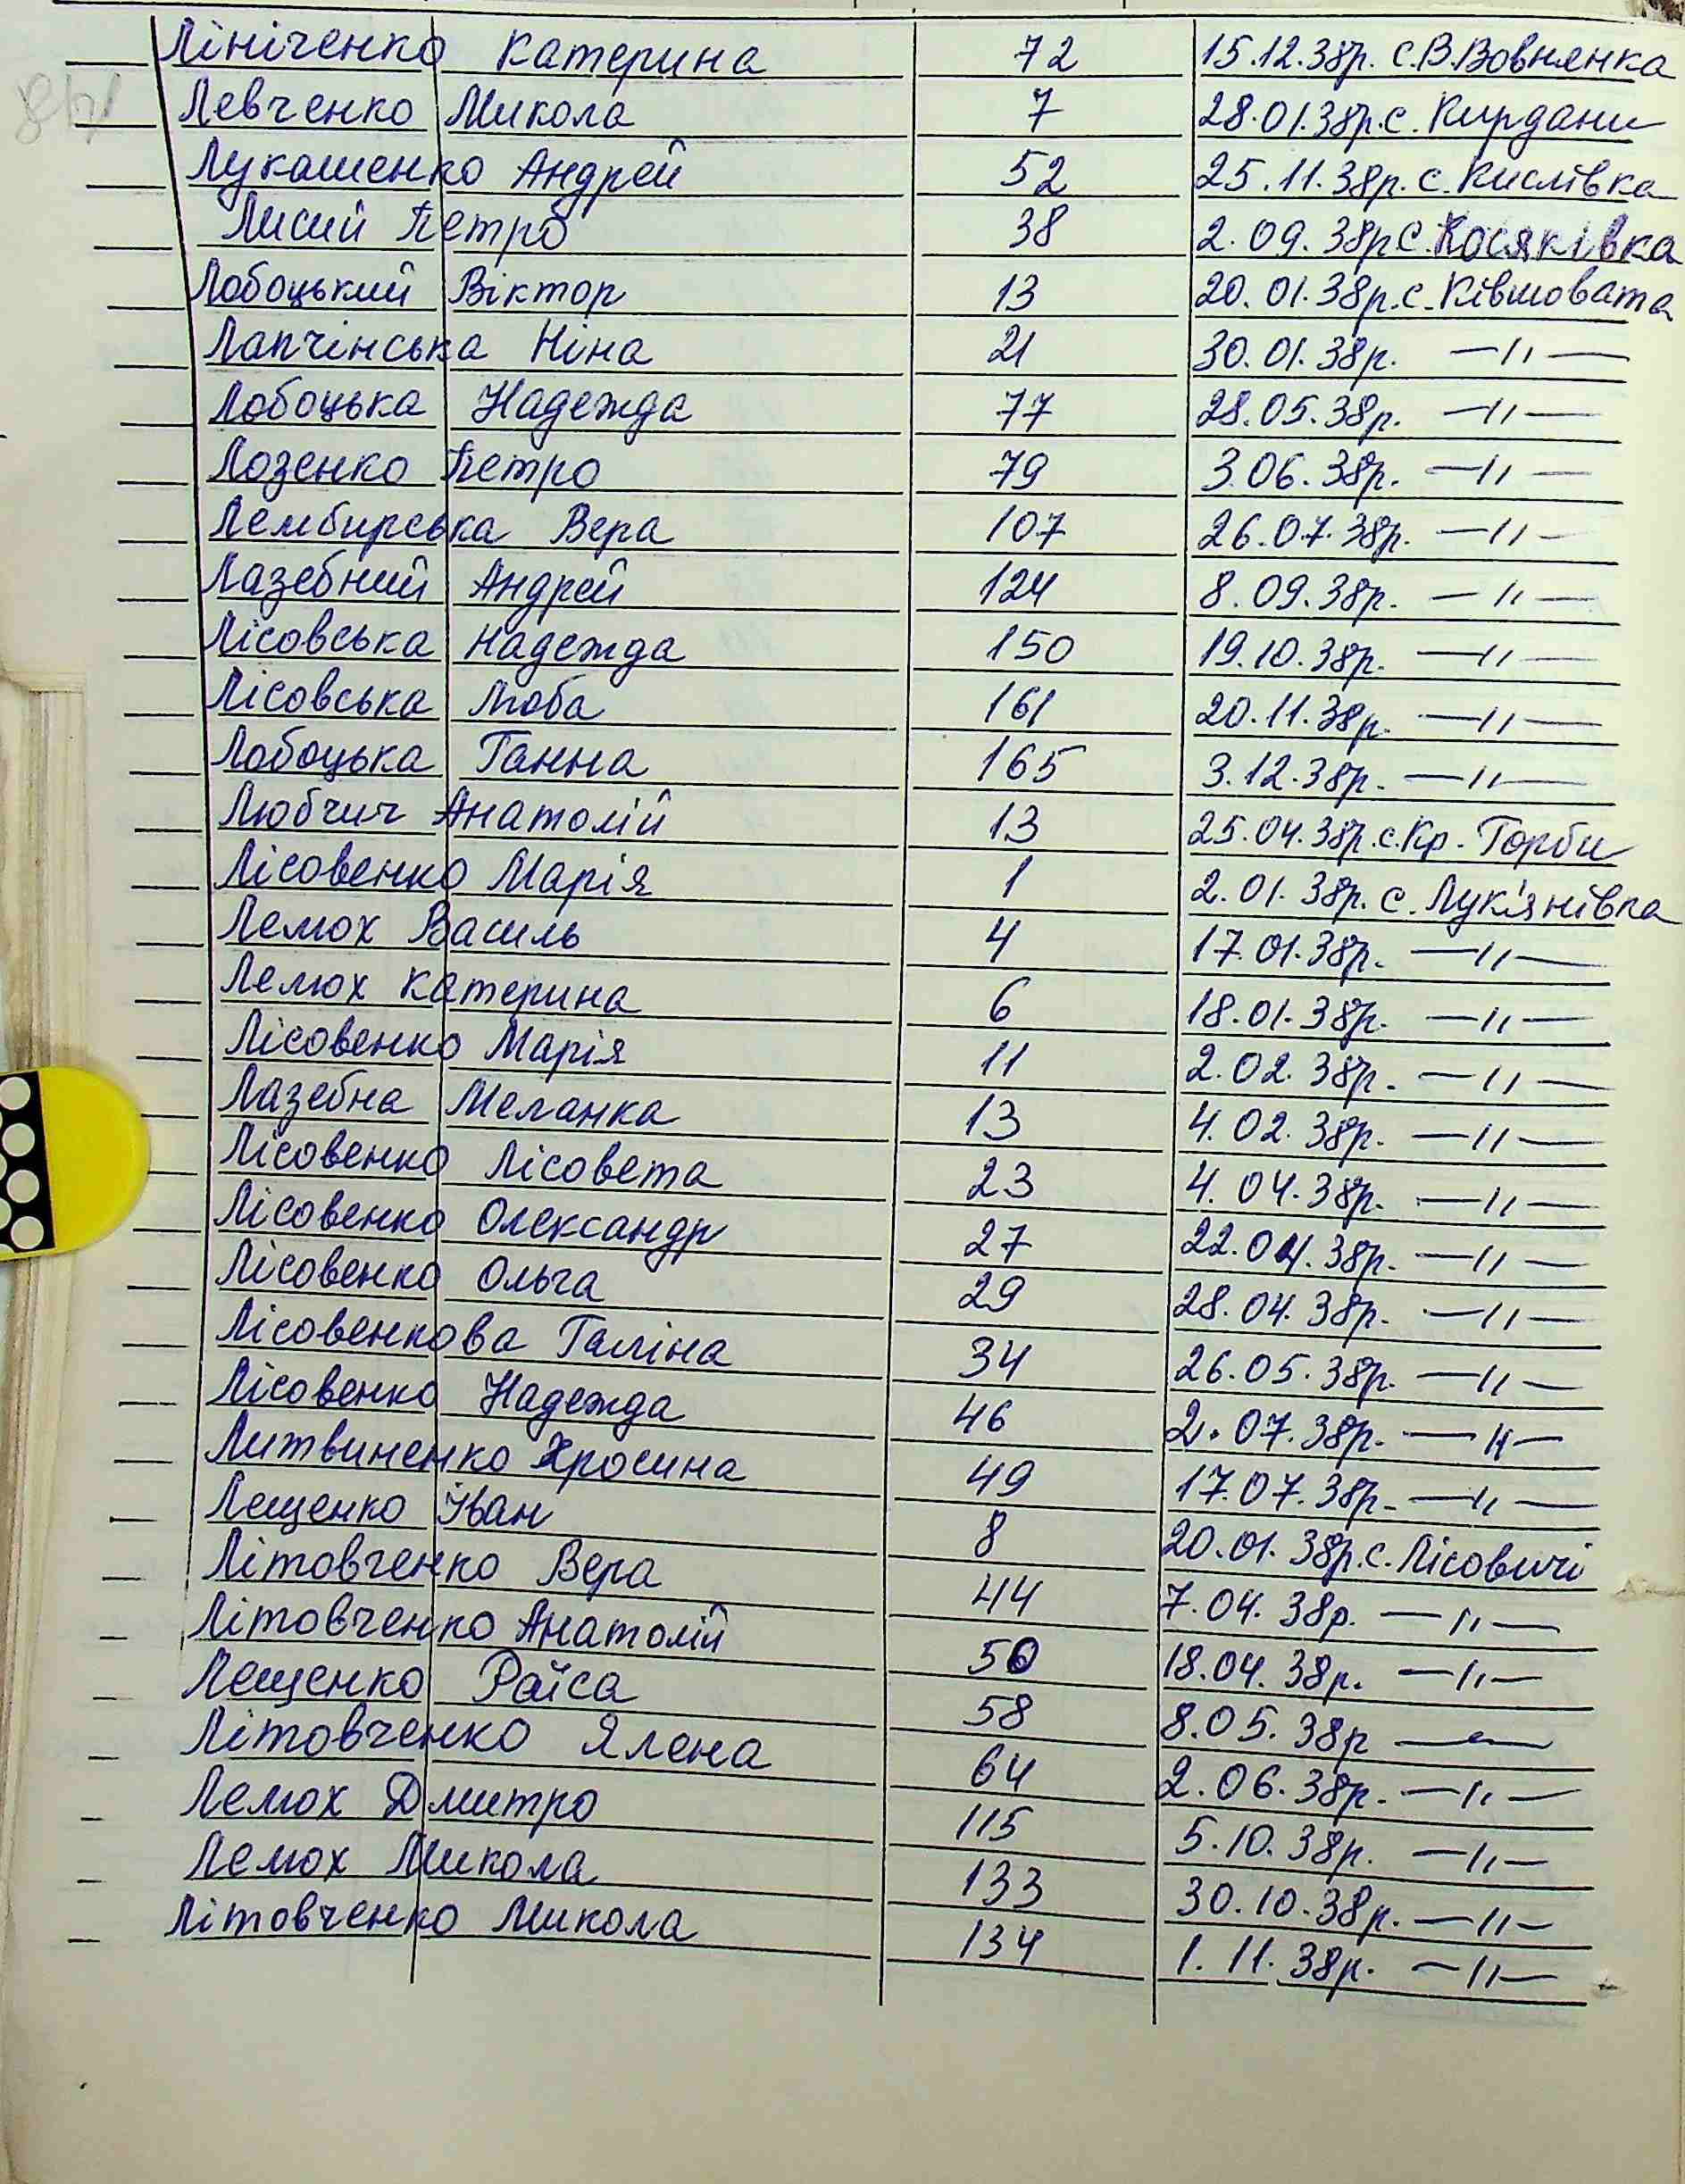 Лініченко Катерина 72 15.12.38р. с.В.Вовнянка
Левченко Микола 7 28.01.38р.с. Кирдани
Лукашенко Андрей 52 25.11.38р. с. Кислівка
Лисий Петро 38 2.09.38р С. Косяківка
Лобоцький Віктор 13 20.01.38р.с. Ківшовата
Лапчінська Ніна 21 30.01.38р. —''—
Лобоцька Надежда 77 28.05.38р. —''—
Лозенко Петро 79 3.06.38р. —''—
Лембирська Вера 107 26.07.38р. —''—
Лазебний Андрей 124 8.09.38р. —''—
Лісовська Надежда 150 19.10.38р. —''—
Лісовська Люба 161 20.11.38р. —''—
Лобоцька Ганна 165 3.12.38р. —''—
Любчич Анатолій 13 25.04.38р.с.Кр. Горби
Лісовенко Марія 1 2.01.38р. с. Лук'янівка
Лемюх Василь 4 17.01.38р. —''—
Лемюх Катерина 6 18.01.38р. —''—
Лісовенко Марія 11 2.02.38р. —''—
Лазебна Меланка 13 4.02.38р. —''—
Лісовенко Лісовета 23 4.04.38р. —''—
Лісовенко Олександр 27 22.04.38р. —''—
Лісовенко Ольга 29 28.04.38р. —''—
Лісовенкова Галіна 34 26.05.38р. —''—
Лісовенко Надежда 46 2.07.38р. —''—
Литвиненко Хросина 49 17.07.38р. —''—
Лещенко Іван 8 20.01.38р.с. Лісовичі
Літовченко Вера 44 7.04.38р. —''—
Літовченко Анатолій 50 18.04.38р. —''—
Лещенко Раїса 58 8.05.38р —''—
Літовченко Ялена 64 2.06.38р. —''—
Лемюх Дмитро 115 5.10.38р. —''—
Лемюх Микола 133 30.10.38р. —''—
Літовченко Микола 134 1.11.38р. —''—